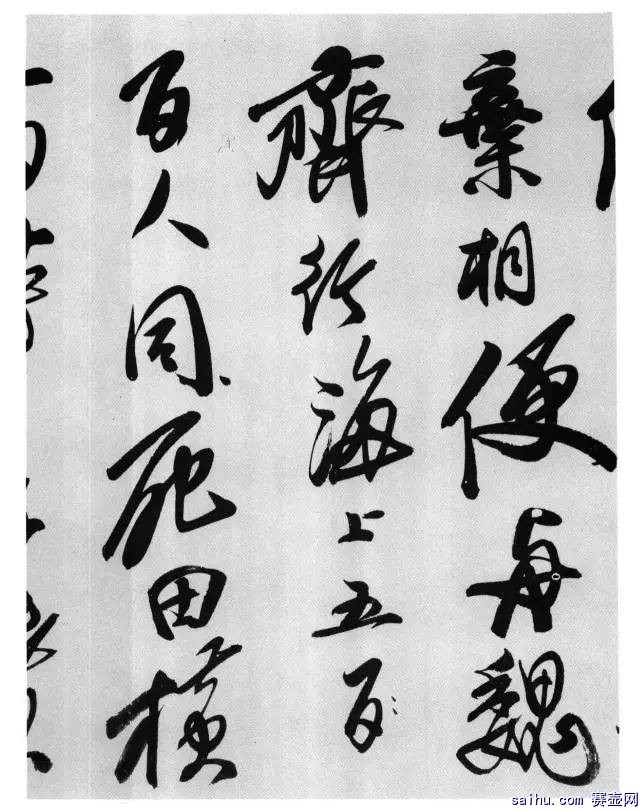 棄相便與魏
齊行海上五百
百人同死田橫
saihu.com 赛壶网